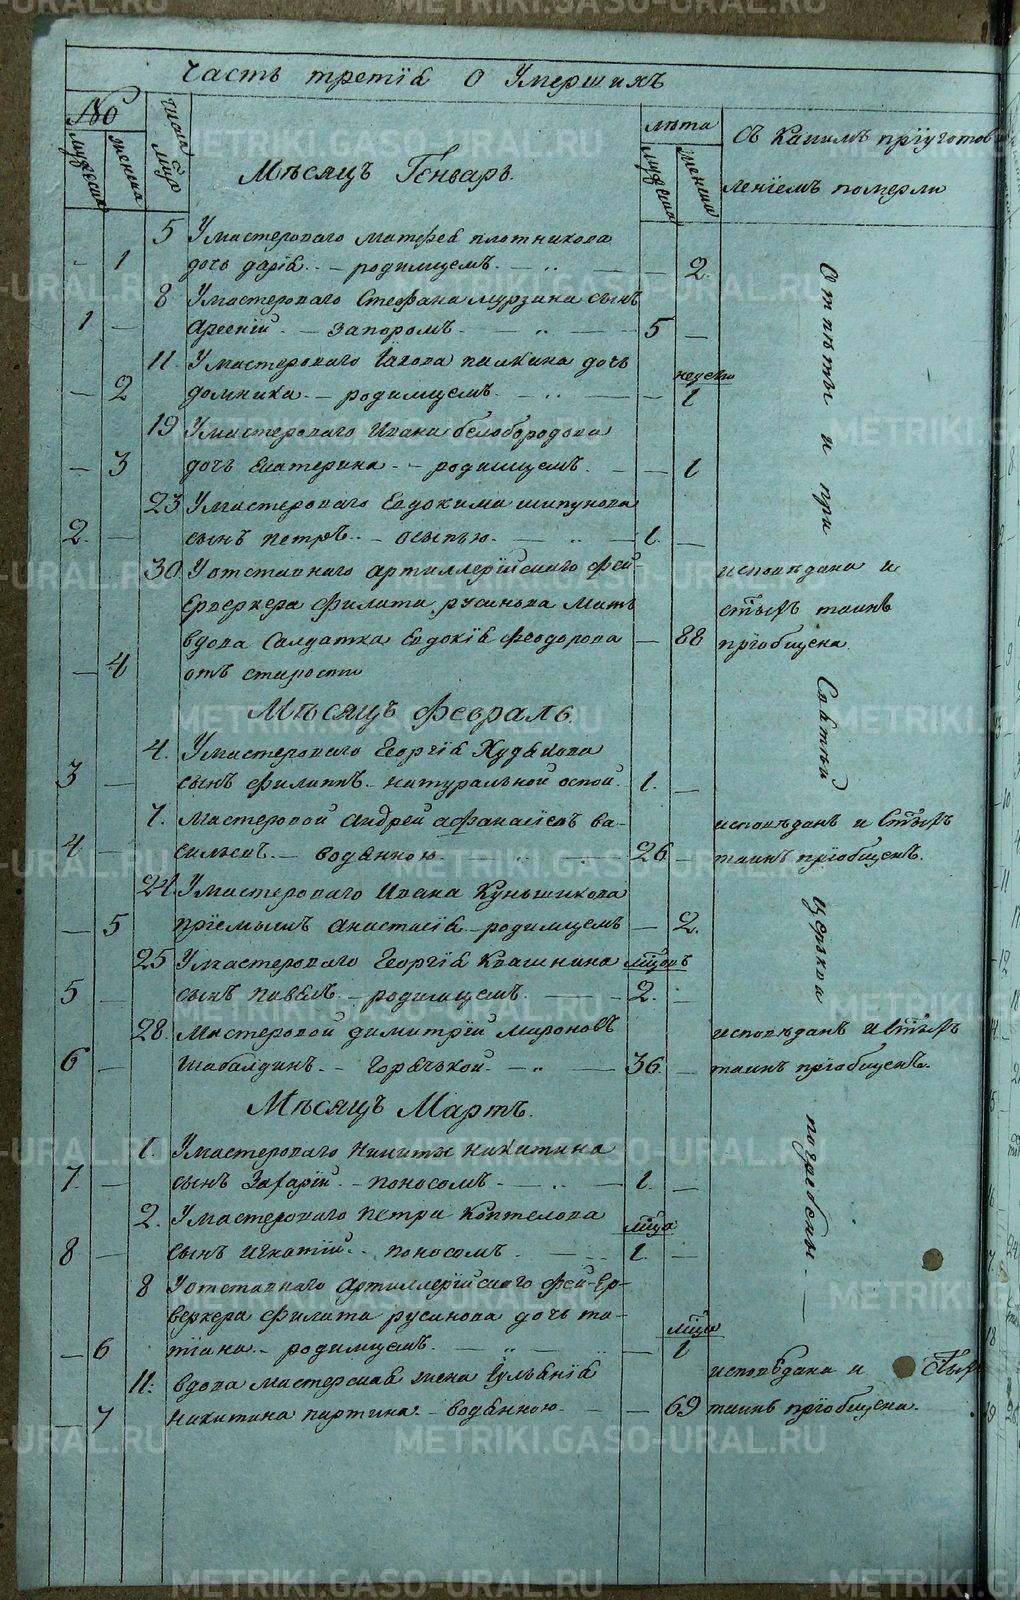 Часть третія О Умершихъ
No
мужеска
женска
Числа м-ца
Мѣсяцъ Генварь.
лѣта
мужеска
женска
Съ какимъ пріуготов
леніемъ померли
5 У мастероваго Матфея плотникова
– 1 дочь дарія. – родимцемъ. – „ – – 2.
8 У мастероваго Стефана мурзина сынъ
1 – Арсеній. – запоромъ – „ – 5 –
11. У мастероваго Іакова палкина дочь
неделю
– 2 домника. – родимцемъ. – „ – – 1
19 У мастероваго Ивана белобородова
– 3 дочь Екатерина – родимцемъ. – – 1
23 У мастероваго Евдокима шипунова
2. – сынъ петръ. – осыпью. – „ – 1. –
30 У отставнаго артиллерійскаго фей-
ерверкера филата русинова мать
вдова Салдатка Евдокія Феодорова – 88
– 4 отъ старости
исповѣдана и
стыхъ таинъ
пріобщена
Мѣсяцъ Февраль.
4. У мастероваго Георгія Худякова
3 – сынъ филиппъ. натуральной оспой. 1. –
7. Мастеровой Андрей афанасіевъ ва-
4 – сильевъ. – водяною. 26 –
исповѣданъ и Стыхъ
таинъ пріобщенъ.
24. У мастероваго Ивана Куньщикова
– 5 пріемышъ анастасія – родимцемъ – 2.
25 У мастероваго Георгія Квашнина мцовъ
5 – сынъ павелъ. – родимцемъ. – 2. –
28. Мастеровой димитрій мироновъ
6 – шабалдинъ. – горячькой. – „ – 36. –
исповѣданъ и Стыхъ
таинъ пріобщенъ.
Мѣсяцъ Мартъ.
1. У мастероваго Никиты никитина
7. – сынъ Захарій. – поносомъ – „ – 1. –
2. У мастероваго петра коптелова
мца
8 – сынъ игнатій. – поносомъ – 1. –
8 У отставнаго Артиллерійскаго фей-ер-
веркера филата русинова дочь та-
мца
– 6 тіана. – родимцемъ. – „ – 1
11. вдова мастерская жена Іуліанія
– 7 никитина партина. – водяною. – – 69
исповѣдана и Стыхъ
таинъ пріобщена.
Отпѣты и при Святой церкви погребены
METRIKI.GASO-URAL.RU